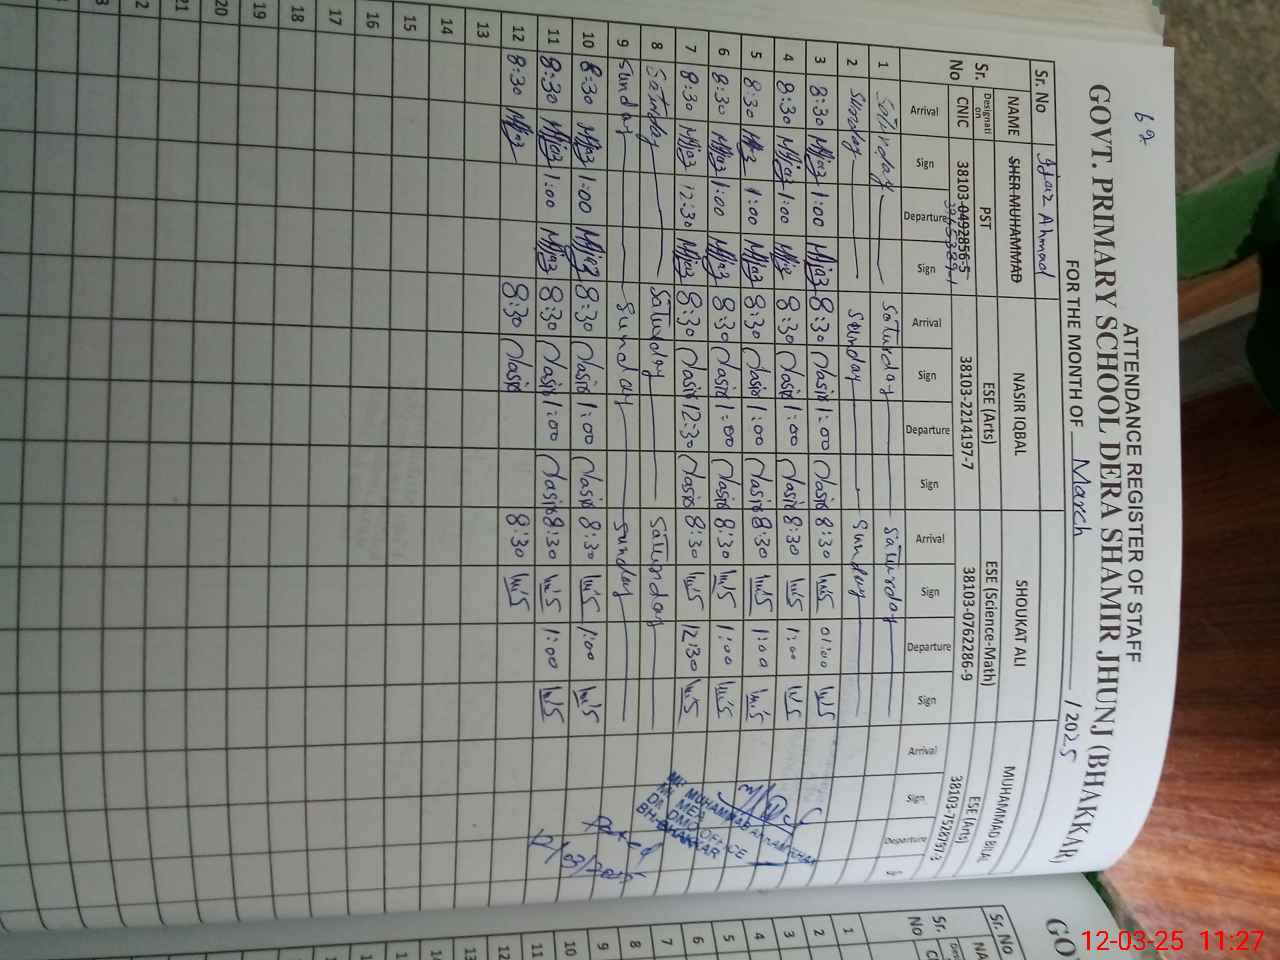 62
ATTENDANCE REGISTER OF STAFF
GOVT. PRIMARY SCHOOL DERA SHAMIR JHUNJ (BHAKKAR)
FOR THE MONTH OF March /2025
Sr. No Ijaz Ahmad
NAME SHER MUHAMMAD NASIR IQBAL SHOUKAT ALI MUHAMMAD BILAL
Designation PST ESE (Arts) ESE (Science-Math) ESE (Arts)
Sr. No CNIC 38103-0492856-5 38103-2214197-7 38103-0762286-9
Arrival Sign Departure Sign Arrival Sign Departure Sign Arrival Sign Departure Sign Arrival Sign Departure
1 Saturday Saturday Saturday
2 Sunday Sunday Sunday
3 8:30 Ijaz 1:00 Ijaz 8:30 Nasir 1:00 Nasir 8:30 01:00
4 8:30 Ijaz 1:00 Ijaz 8:30 Nasir 1:00 Nasir 8:30 1:00
5 8:30 Ijaz 1:00 Ijaz 8:30 Nasir 1:00 Nasir 8:30 1:00
6 8:30 Ijaz 1:00 Ijaz 8:30 Nasir 1:00 Nasir 8:30 1:00
7 8:30 Ijaz 12:30 Ijaz 8:30 Nasir 12:30 Nasir 8:30 12:30
8 Saturday Saturday Saturday
9 Sunday Sunday Sunday
10 8:30 Ijaz 1:00 Ijaz 8:30 Nasir 1:00 Nasir 8:30 1:00
11 8:30 Ijaz 1:00 Ijaz 8:30 Nasir 1:00 Nasir 8:30 1:00
12 8:30 Ijaz 8:30 Nasir 8:30
13
14
15
16
17
18
19
20
21
MEA
DMO OFFICE
BHAKKAR
Dated
12/03/2025
GO
Sr. No
NA
Sr. No
1
2
3
4
5
6
7
8
9
10
11
12
13
12-03-25 11:27